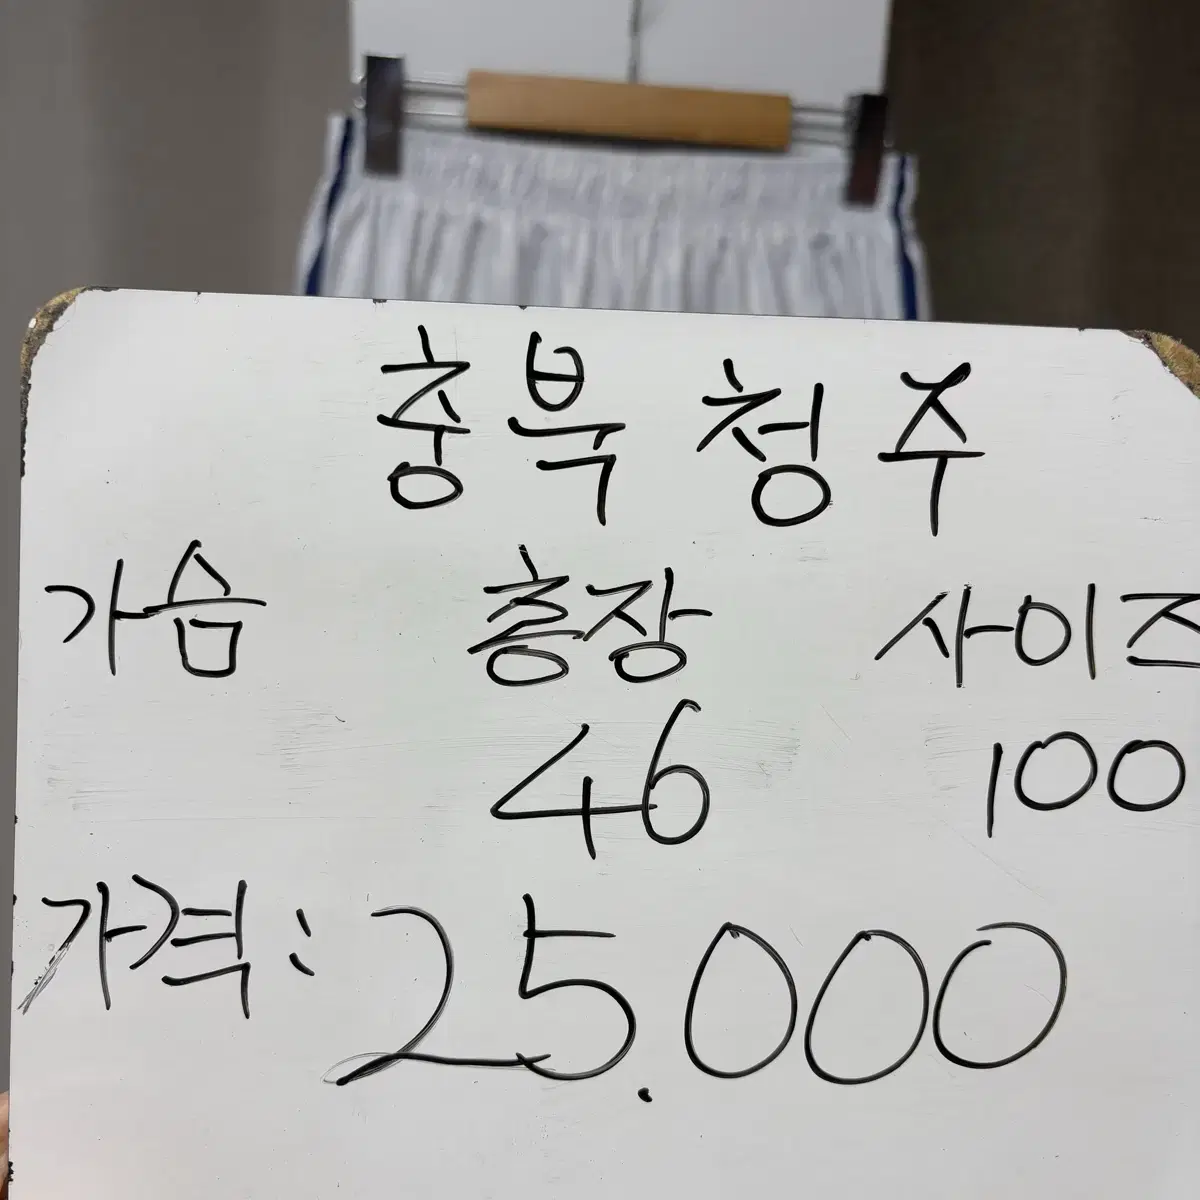 충북 청주
가슴 총장 사이즈
46 100
가격: 25.000